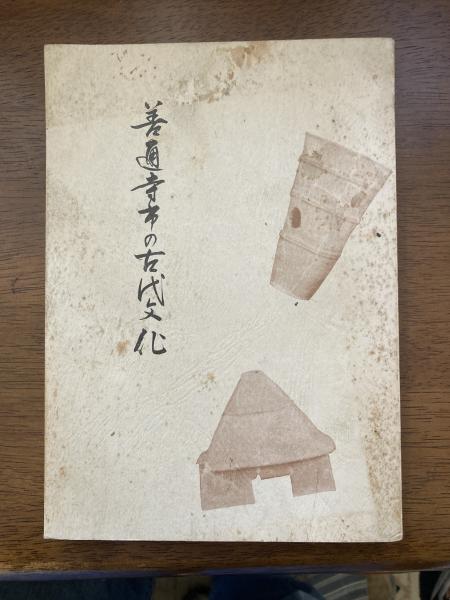 善通寺市の古代文化